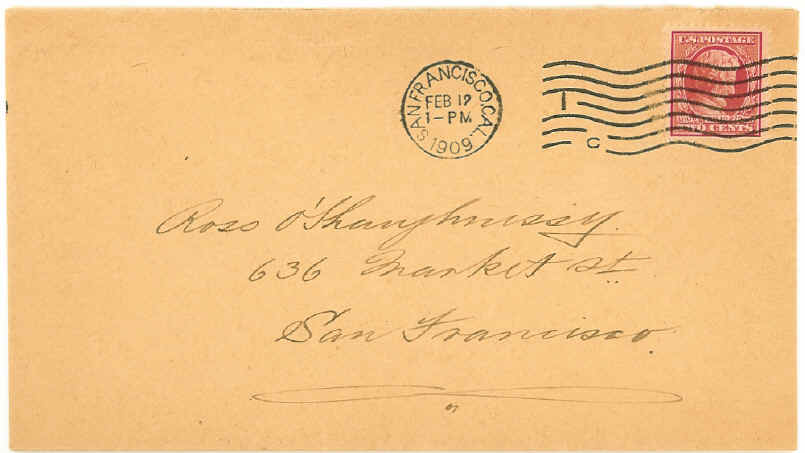 U.S. POSTAGE
SAN FRANCISCO, CAL.
FEB 12
1-PM
1909
1
C
TWO CENTS
Ross O'Shaughnessy.
636 Market St.
San Francisco.